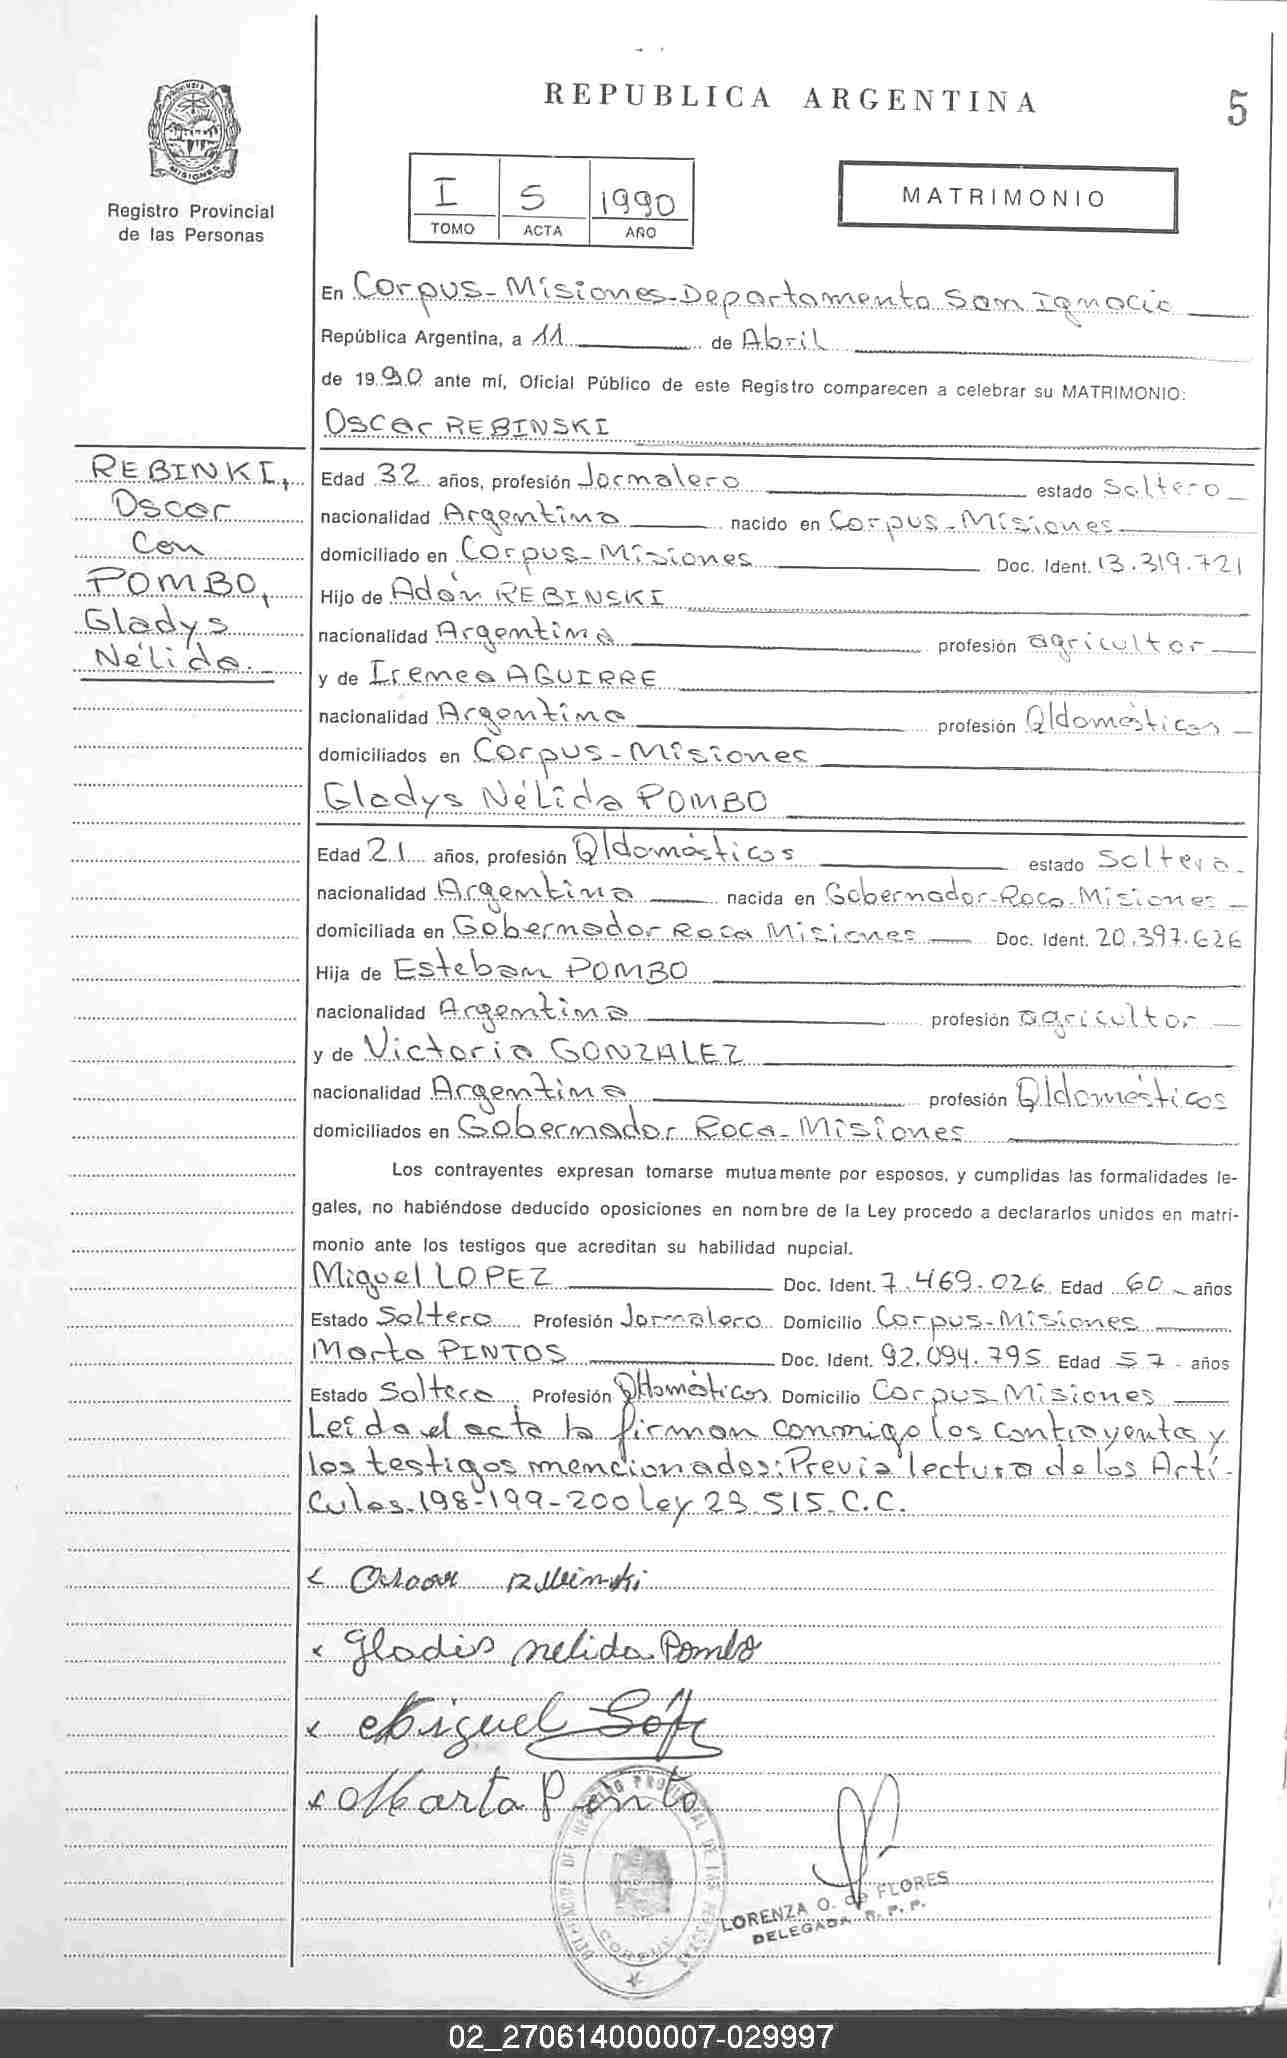 REPUBLICA ARGENTINA
5
MISIONES
Registro Provincial
de las Personas
I 5 1990
TOMO ACTA AÑO
MATRIMONIO
En Corpus-Misiones-Departamento San Ignacio
República Argentina, a 11 de Abril
de 1990 ante mí, Oficial Público de este Registro comparecen a celebrar su MATRIMONIO:
Oscar REBINSKI
REBINKI,
Oscar
Con
POMBO,
Gladys
Nélida.
Edad 32 años, profesión Jornalero estado Soltero
nacionalidad Argentina nacido en Corpus-Misiones
domiciliado en Corpus-Misiones Doc. Ident. 13.319.721
Hijo de Adán REBINSKI
nacionalidad Argentina profesión agricultor
y de Irenea AGUIRRE
nacionalidad Argentina profesión Q/domésticos
domiciliados en Corpus-Misiones
Gladys Nélida POMBO
Edad 21 años, profesión Q/domésticos estado Soltera
nacionalidad Argentina nacida en Gobernador-Roca-Misiones
domiciliada en Gobernador Roca Misiones Doc. Ident. 20.397.626
Hija de Esteban POMBO
nacionalidad Argentina profesión agricultor
y de Victoria GONZALEZ
nacionalidad Argentina profesión Q/domésticos
domiciliados en Gobernador Roca-Misiones
Los contrayentes expresan tomarse mutuamente por esposos, y cumplidas las formalidades le-
gales, no habiéndose deducido oposiciones en nombre de la Ley procedo a declararlos unidos en matri-
monio ante los testigos que acreditan su habilidad nupcial.
Miguel LOPEZ Doc. Ident. 7.469.026 Edad 60 años
Estado Soltero Profesión Jornalero Domicilio Corpus-Misiones
Marta PINTOS Doc. Ident. 92.094.795 Edad 57 años
Estado Soltera Profesión Q/domésticos Domicilio Corpus-Misiones
Leída el acta la firman conmigo los contrayentes y
los testigos mencionados: Previa lectura de los Artí-
culos 198-199-200 Ley 23.515 C.C.
Oscar Rebinski
Gladis nelida Pombo
Miguel
Marta Pinto
DELEGACION DEL REGISTRO PROVINCIAL DE LAS PERSONAS
CORPUS
LORENZA O. de FLORES
DELEGADA R. P. P.
02_270614000007-029997